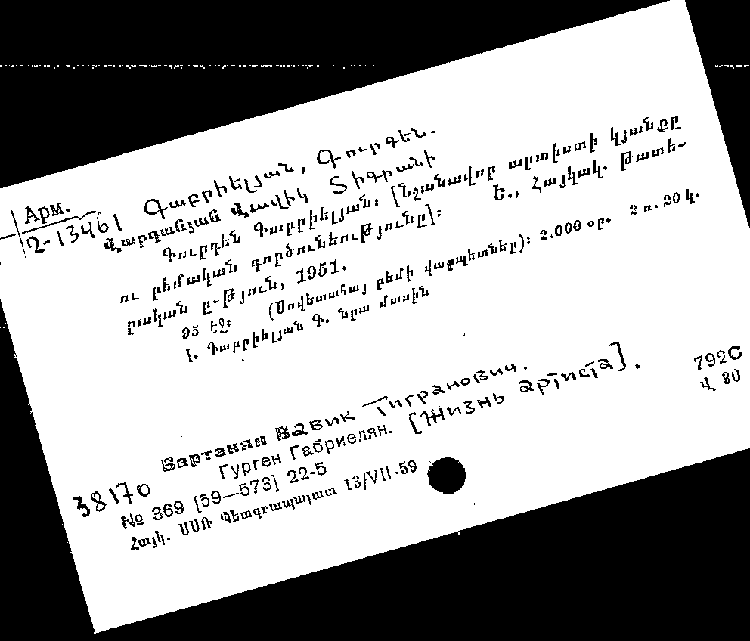 Арм.
2-13461 Գաբրիելյան, Գուրգեն.
Վարդանյան Վավիկ Տիգրանի
Գուրգեն Գաբրիելյան. [Նշանավոր արտիստի կյանքը
ու բեմական գործունեությունը]: Ե., Հայկակ. թատե-
րական ը-թյուն, 1951.
95 էջ: (Սովետահայ բեմի վարպետները): 2.000 օր. 2 ռ. 20 կ.
1. Գաբրիելյան Գ. նրա մասին
Вартанян Вавик Тигранович.
Гурген Габриелян. [Жизнь артиста].
792С
Վ 80
38170
№ 369 [59—573] 22-5
Հայկ. ՍՍՌ Գետգրապալատ 13/VII-59